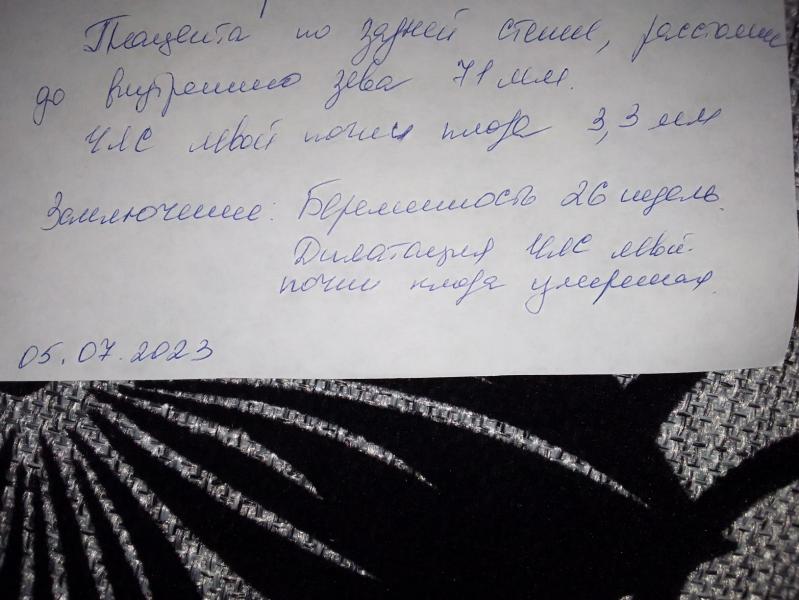 Плацента по задней стенке, расстояние
до внутреннего зева 71 мм.
ЧЛС левой почки плода 3,3 мм
Заключение: Беременность 26 недель.
Дилатация ЧЛС левой
почки плода умеренная.
05.07.2023